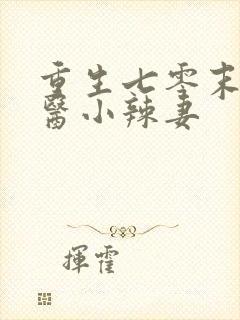 重生七零末
醫小辣妻
揮霍